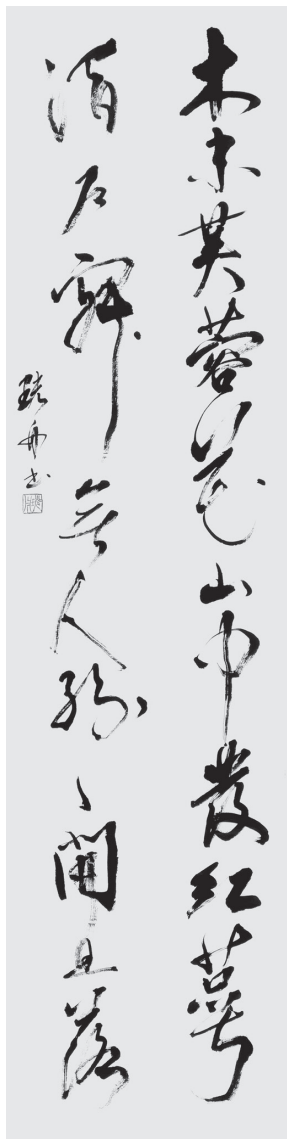 木末芙蓉花山中發紅萼
澗戶寂無人紛〻開且落
舟書